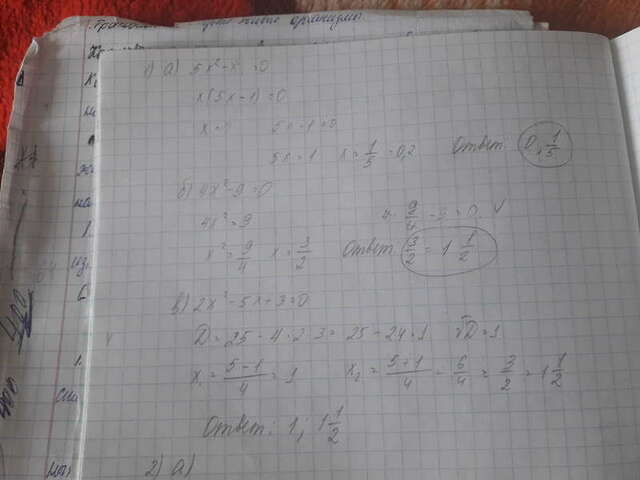 устойчиво организмы
1) а) 5x² - x = 0
x(5x - 1) = 0
x = 0 5x - 1 = 0
5x = 1 x = 1/5 = 0,2 Ответ 0, 1/5
б) 4x² - 9 = 0
4x² = 9 4 · 9/4 - 9 = 0 V
x² = 9/4 x = 3/2 Ответ 3/2 = 1 1/2
в) 2x² - 5x + 3 = 0
D = 25 - 4 · 2 · 3 = 25 - 24 = 1 √D = 1
x₁ = (5-1)/4 = 1 x₂ = (5+1)/4 = 6/4 = 3/2 = 1 1/2
Ответ: 1; 1 1/2
2) а)